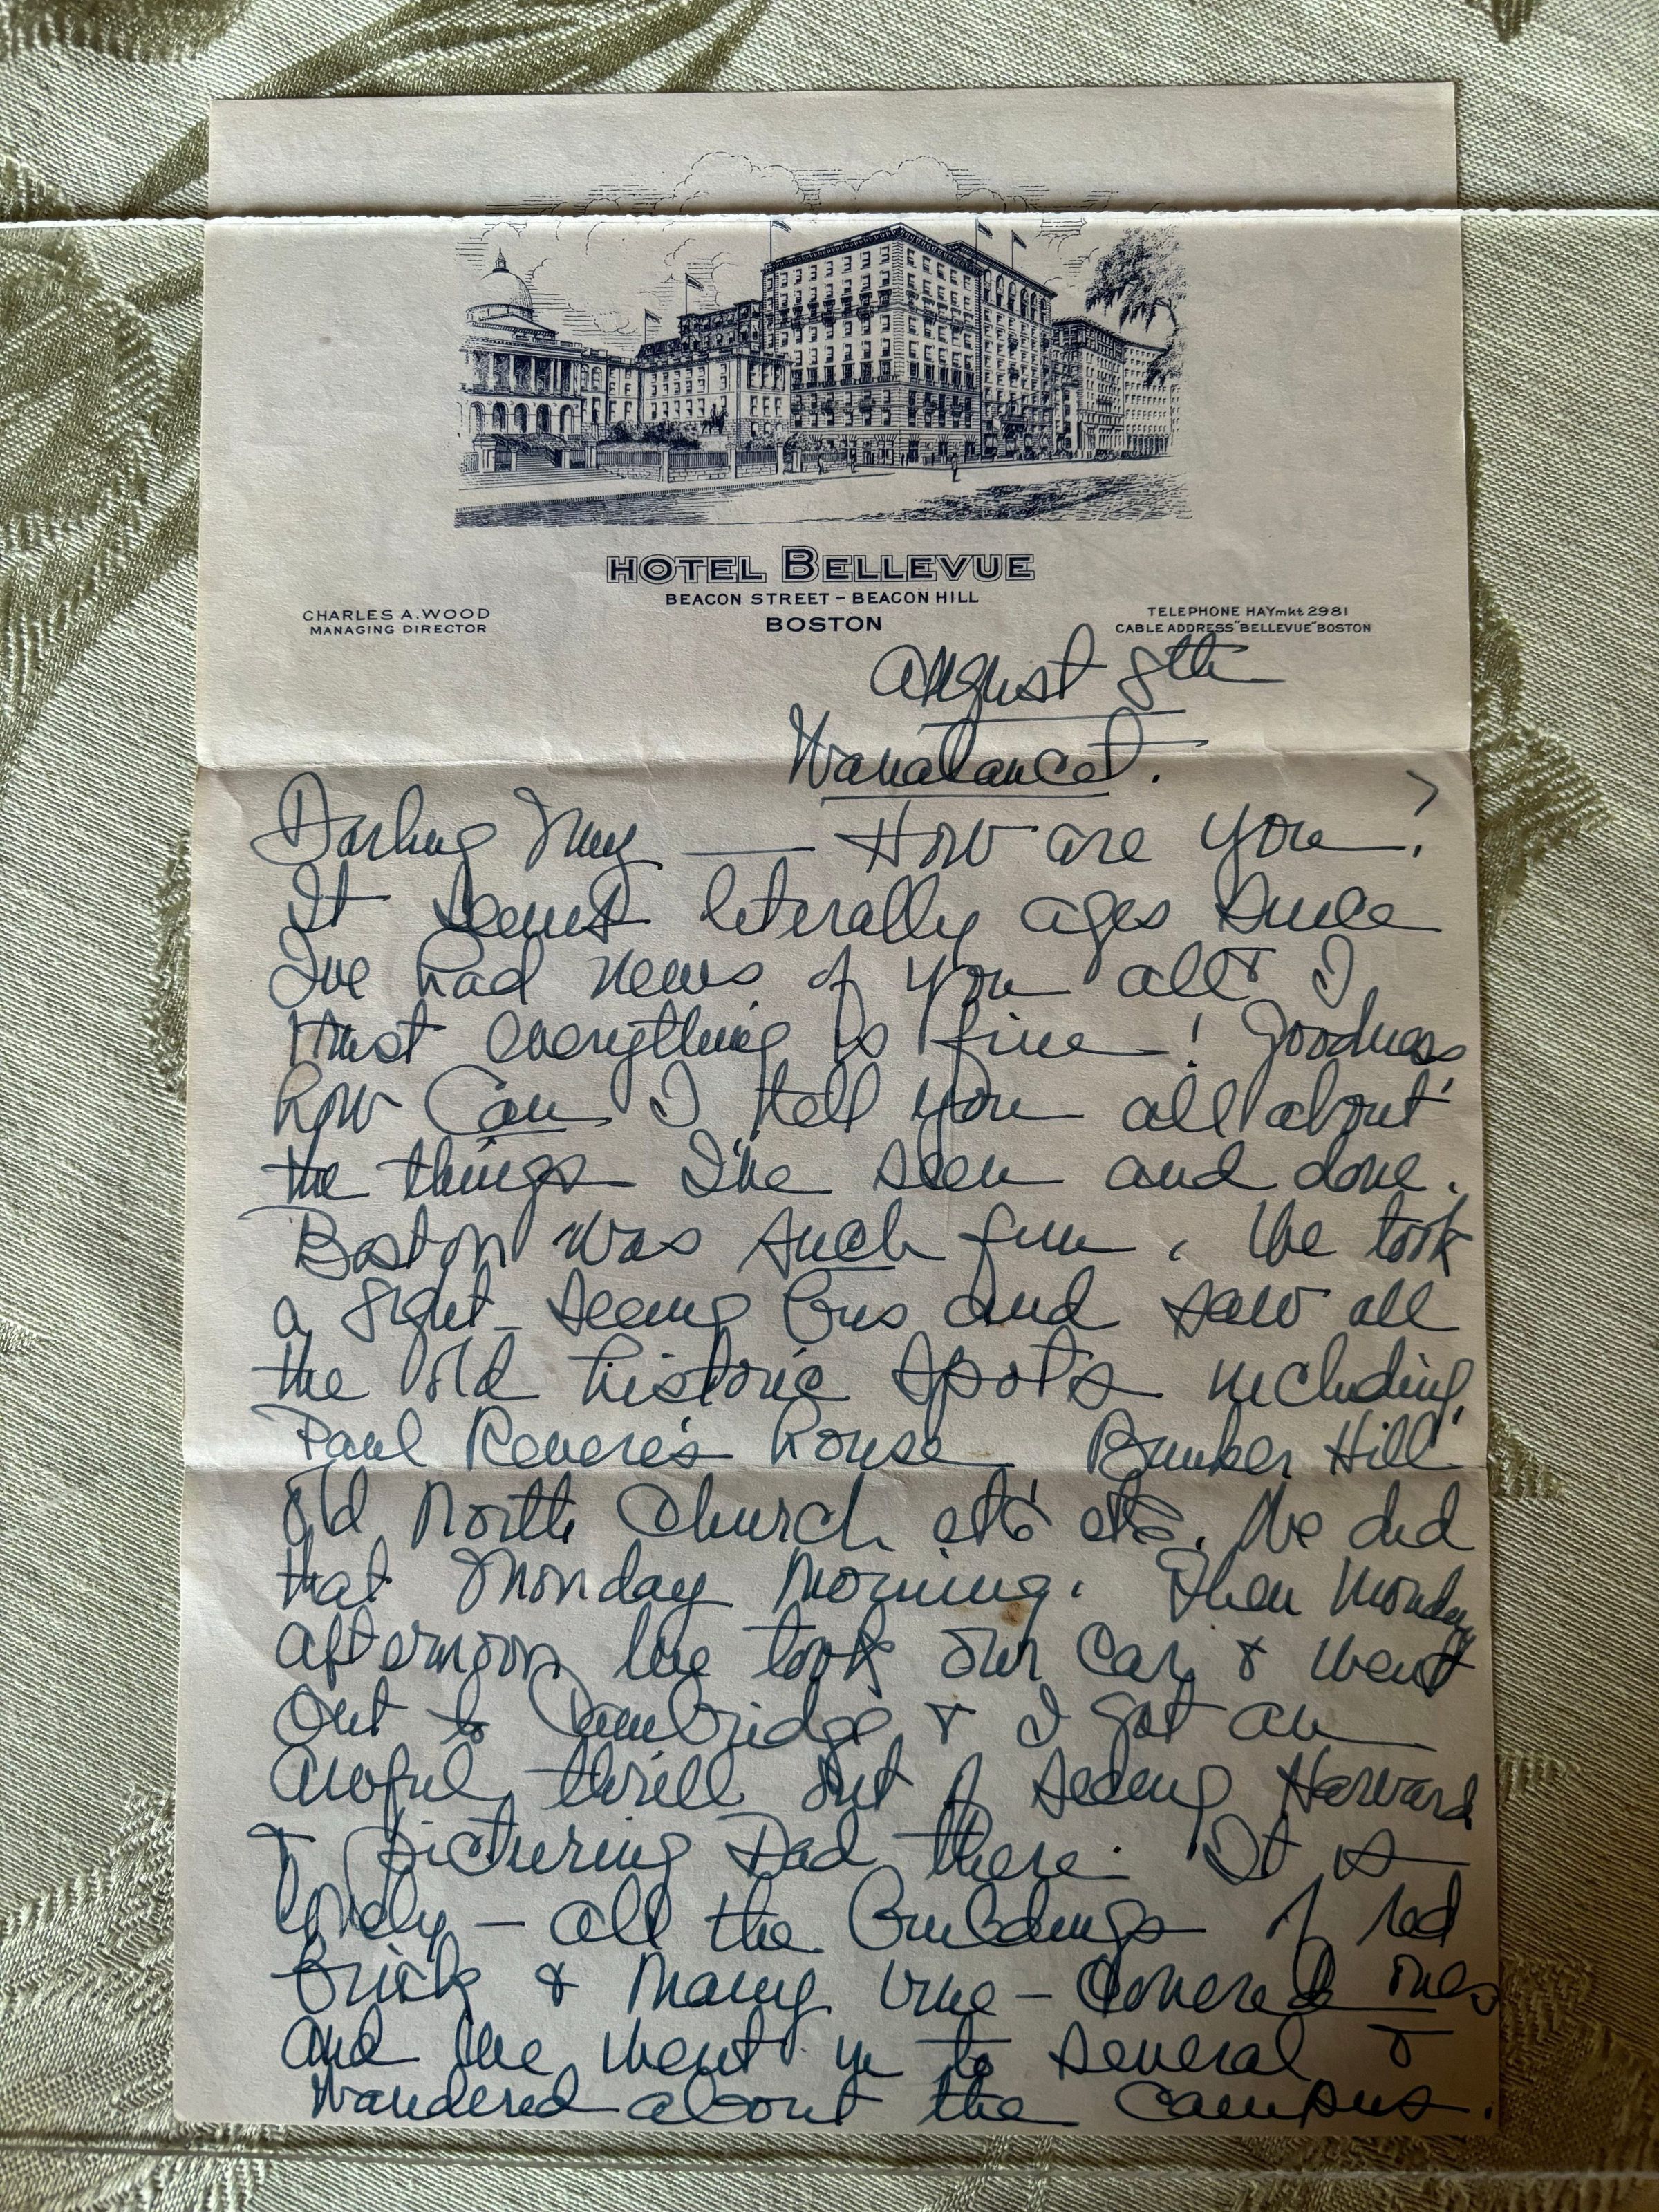 HOTEL BELLEVUE
BEACON STREET - BEACON HILL
BOSTON
CHARLES A. WOOD
MANAGING DIRECTOR
TELEPHONE HAYmkt 2981
CABLE ADDRESS "BELLEVUE" BOSTON
August 8th
Wanalancet.
Darling Muy — How are you?
It seems literally ages since
I've had news of you all & I
trust everything is fine! Goodness
how can I tell you all about
the things I've seen and done.
Boston was such fun. We took
a sight-seeing bus and saw all
the old historic spots including
Paul Revere's house Bunker Hill
Old North Church etc etc. We did
that Monday morning. Then Monday
afternoon we took our car & went
out to Cambridge & I got an
awful thrill out of seeing Harvard
& picturing Dad there. It is
lovely - all the buildings of red
brick & many vine-covered ones
and we went in to several &
wandered about the campus.